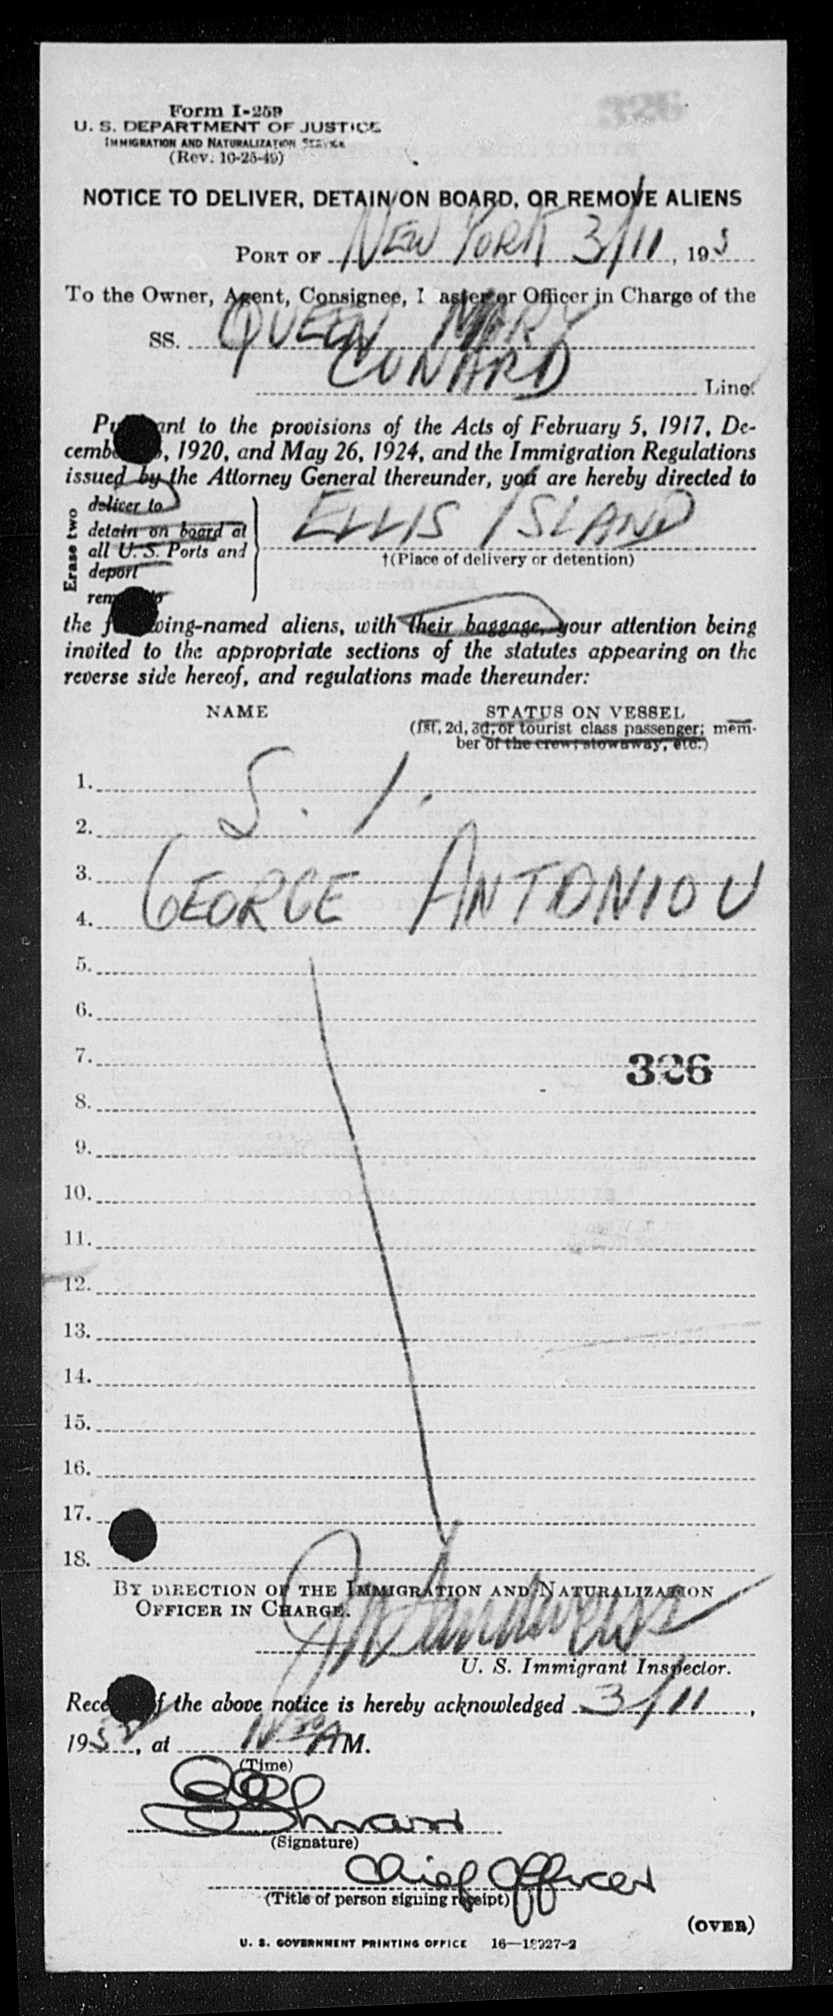 326
Form I-259
U. S. DEPARTMENT OF JUSTICE
IMMIGRATION AND NATURALIZATION SERVICE
(Rev. 10-25-49)
NOTICE TO DELIVER, DETAIN ON BOARD, OR REMOVE ALIENS
PORT OF NEW YORK 3/11, 195
To the Owner, Agent, Consignee, Master or Officer in Charge of the
SS. QUEEN MARY
CUNARD Line:
Pursuant to the provisions of the Acts of February 5, 1917, De-
cember, 1920, and May 26, 1924, and the Immigration Regulations
issued by the Attorney General thereunder, you are hereby directed to
Erase two
deliver to
detain on board at
all U. S. Ports and
deport
remove to
ELLIS ISLAND
†(Place of delivery or detention)
the following-named aliens, with their baggage, your attention being
invited to the appropriate sections of the statutes appearing on the
reverse side hereof, and regulations made thereunder:
NAME STATUS ON VESSEL
(1st, 2d, 3d, or tourist class passenger; mem-
ber of the crew; stowaway, etc.)
1. S. I.
2.
3. GEORGE ANTONIOU
4.
5.
6.
7. 326
8.
9.
10.
11.
12.
13.
14.
15.
16.
17.
18.
BY DIRECTION OF THE IMMIGRATION AND NATURALIZATION
OFFICER IN CHARGE.
U. S. Immigrant Inspector.
Receipt of the above notice is hereby acknowledged 3/11,
195, at AM.
(Time)
(Signature)
Chief Officer
(Title of person signing receipt)
(OVER)
U. S. GOVERNMENT PRINTING OFFICE 16—18227-2